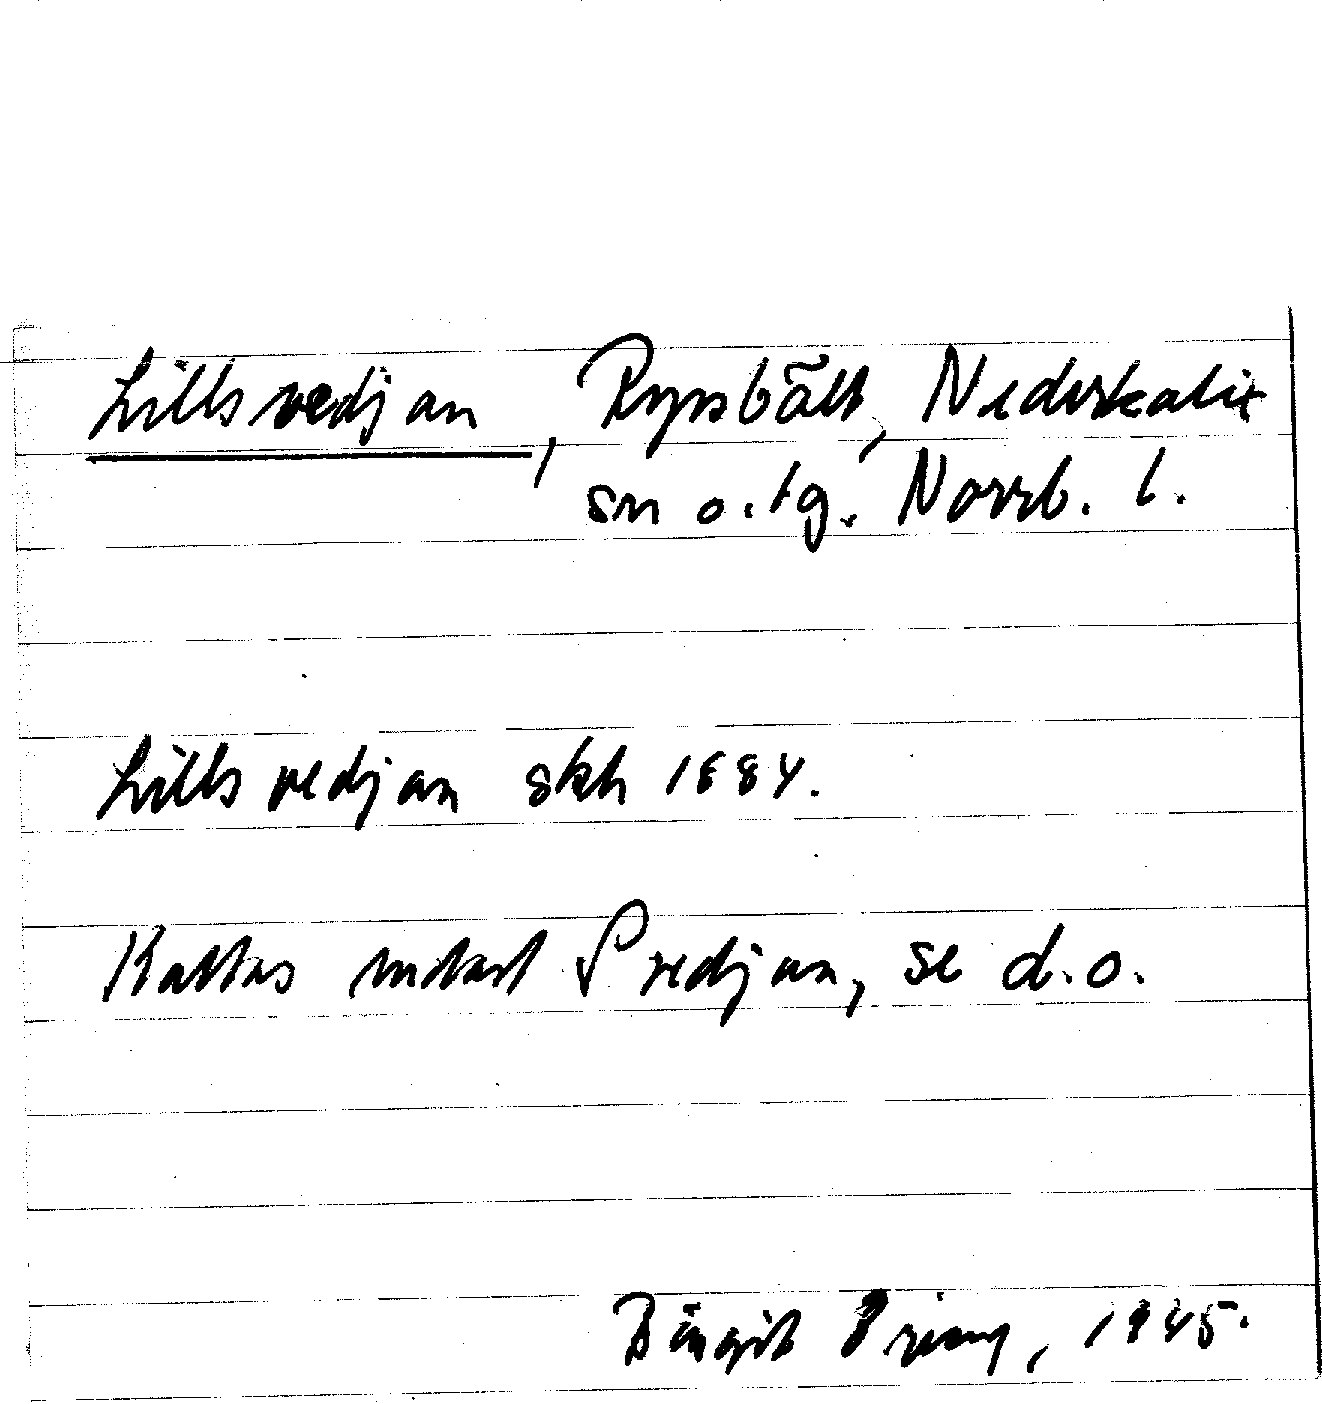 Lillsvedjan, Rynbält, Nederkalix
sn o. tg. Norrb. l.
Lillsvedjan skh 1884.
Kallas endast Svedjan, se d.o.
Birgit 1945.